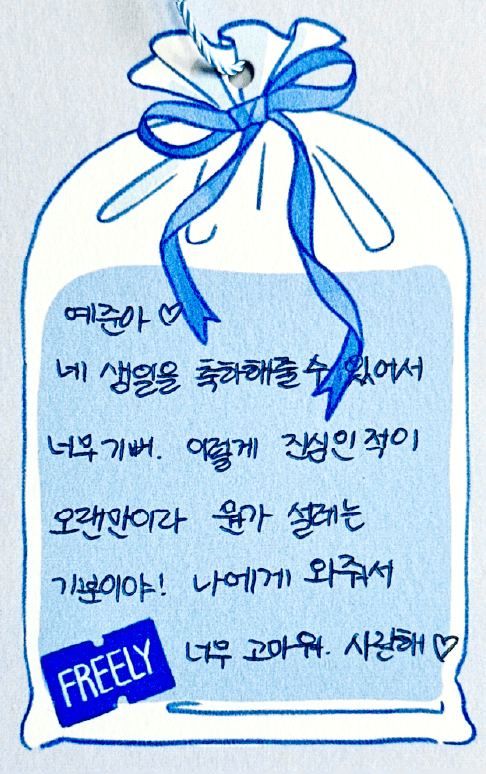 예준아 ♡
네 생일을 축하해줄 수 있어서
너무 기뻐. 이렇게 진심인 적이
오랜만이라 뭔가 설레는
기분이야! 나에게 와줘서
너무 고마워. 사랑해 ♡
FREELY